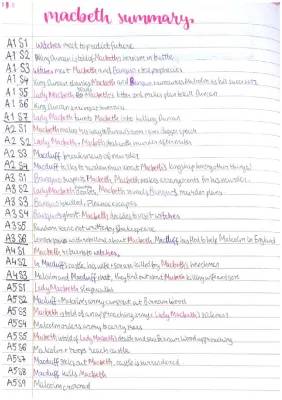 macbeth summary.
A1 S1 Witches meet to predict future
A1 S2 King Duncan is told of Macbeth's heroism in battle
A1 S3 Witches meet Macbeth and Banquo + tell prophecies
A1 S4 King Duncan thanks Macbeth and Banquo + names Malcolm as his successor
A1 S5 Lady Macbeth reads Macbeth's letter and makes plan to kill Duncan
A1 S6 King Duncan arrives at Inverness
A1 S7 Lady Macbeth taunts Macbeth into killing Duncan
A2 S1 Macbeth makes his way to Duncan's room + sees dagger
A2 S2 Lady Macbeth + Macbeth murder
A2 S3 Macduff news of murder
A2 S4 Macduff talks to
A3 S1 Banquo suspects Macbeth, Macbeth makes arrangements for his murder
A3 S2 Lady Macbeth Macbeth reveals Banquo's murder plans
A3 S3 Banquo is killed, Fleance escapes
A3 S4 Banquo's ghost. Macbeth decides to visit witches
A3 S5 scene not written by Shakespeare
A3 S6 Lennox Macbeth. Macduff has fled to help Malcolm in England
A4 S1 Macbeth returns to witches
A4 S2 Macduff's castle, his wife + son are killed by Macbeth's henchmen
A4 S3 Malcolm and Macduff meet, they find out about Macbeth killing wife and son
A5 S1 Lady Macbeth sleepwalks
A5 S2 Macduff + Malcolm's army camp out at Birnam Wood
A5 S3 Macbeth is told of an approaching army + Lady Macbeth's sickness
A5 S4 Malcolm orders army to carry trees
A5 S5 Macbeth is told of Lady Macbeth's death and sees Birnam wood approaching
A5 S6 Malcolm + troops reach castle
A5 S7 Macduff seeks out Macbeth, castle is surrendered
A5 S8 Macduff kills Macbeth
A5 S9 Malcolm crowned